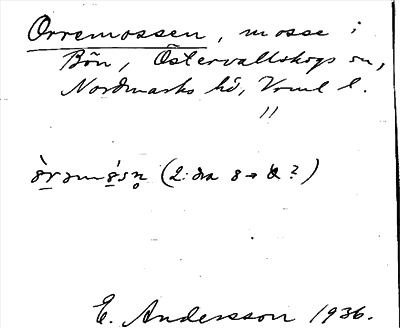 Orremossen, mosse i
Bön, Östervallskogs sn,
Nordmarks hd, Vrml l.
"
(2: dra 8 → ?)
E. Andersson 1936.